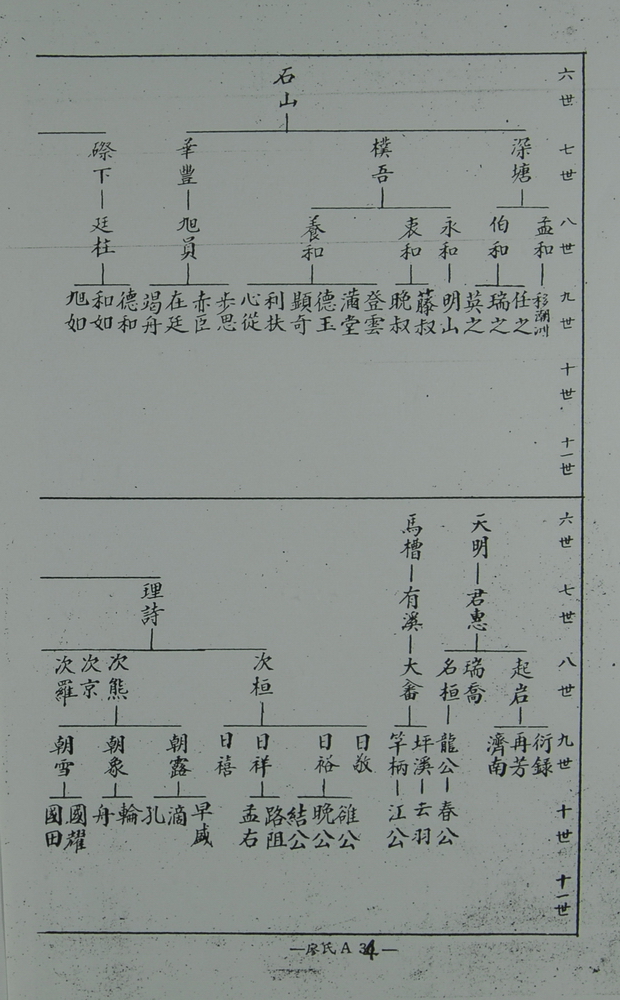 六世
七世
八世
九世
十世
十一世
石山
深塘
樸吾
華豐
磜下
孟和
伯和
永和
衷和
養和
旭員
廷柱
移潮州
任之
瑞之
英之
明山
藤叔
晚叔
登雲
滿堂
德玉
顯奇
利扶
心從
步思
赤臣
在廷
竭舟
德和
和如
旭如
六世
七世
八世
九世
十世
十一世
天明
馬槽
君惠
有溪
理詩
起岩
瑞喬
名桓
大畬
次桓
次熊
次京
次羅
衍錄
再芳
濟南
龍公
坪溪
竿柄
日敬
日裕
日祥
日禧
朝露
朝象
朝雪
春公
云羽
江公
晚公
結公
路阻
孟右
早盛
滴
孔
輪
舟
國耀
國田
—廖氏A34—